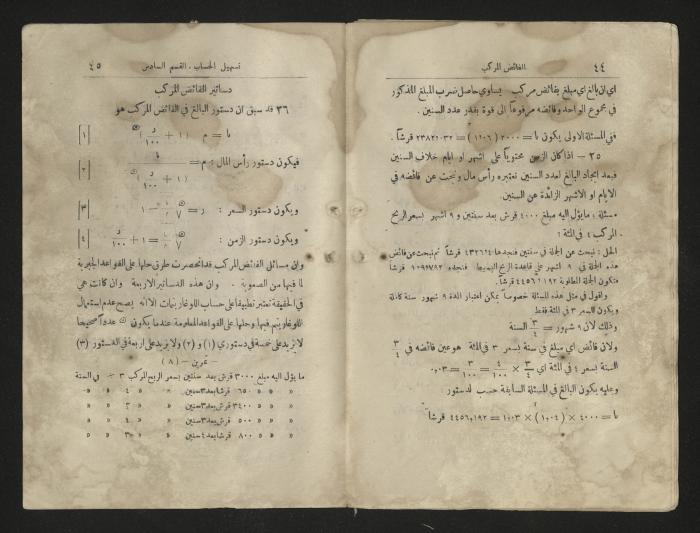 ٤٤ الفائض المركب
اي ان بالغ اي مبلغ بفائض مركب يساوي حاصل ضرب المبلغ المذكور
في مجموع الواحد وفائضه مرفوعاً الى قوة بقدر عدد السنين .
ففي المسئلة الاولى يكون ىا = ٢٠٠٠ (١٫٠٦)
٢٥ — اذا كان الزمن محتوياً على اشهر او ايام خلاف السنين
فبعد ايجاد البالغ لعدد السنين نعتبره رأس مال ونبحث عن فائضه في
الايام او الاشهر الزائدة عن السنين .
مسئلة : ما يؤل اليه مبلغ ٤٠٠٠ قرش بعد سنتين و ٩ اشهر بسعر الربح
المركب ٤ في المئة ؟
الحل : نبحث عن الجملة في سنتين فنجدها ٤٣٢٦٫٤ قرشاً ثم نبحث عن فائض
هذه الجملة في ٩ اشهر على قاعدة الربح البسيط فنجده قرشاً
فتكون الجملة المطلوبة ٤٤٥٦٫١٩٢ قرشاً
واقول في مثل هذه المسئلة خصوصاً يمكن اعتبار المدة ٩ شهور سنة كاملة
ويكون بالسعر ٣ في المئة فقط
وذلك لان ٩ شهور = ٣/٤ السنة
ولان فائض اي مبلغ في سنة بسعر ٣ في المئة هو عين فائضه في ٣/٤
السنة بسعر ٤ في المئة اي ٣/٤ × ٤/١٠٠ = ٣/١٠٠ = ٠٫٠٣
وعليه يكون البالغ في المسئلة السابقة حسب الدستور
ىا = ٤٠٠٠ × (١٫٠٤) × ١٫٠٣ = ٤٤٥٦٫١٩٢ قرشاً
تسهيل الحساب . القسم السادس ٤٥
دساتير الفائض المركب
٣٦ قد سبق ان دستور البالغ في الفائض المركب هو
ىا = م (١ + ر/١٠٠) [١]
فيكون دستور رأس المال : م = (١ + ر/١٠٠) [٢]
ويكون دستور السعر : ر = [٣]
ويكون دستور الزمن : = ١ + ر/١٠٠ [٤]
وان مسائل الفائض المركب قد انحصرت طرق حلها على القواعد الجبرية
لما فيها من الصعوبة . وان هذه الدساتير الاربعة وان كانت هي
في الحقيقة تعتبر تطبيقا على حساب اللوغاريتمات الا انه يصح عدم استعمال
اللوغاريتم فيها وحلها على القواعد المعلومة عند ما يكون عددا صحيحا
لا يزيد على خمسة في دستوري (١) و (٢) ولا يزيد على اربعة في الدستور (٣)
— تمرين — (٨)
ما يؤل اليه مبلغ ٣٠٠٠ قرش بعد سنتين بسعر الربح المركب ٣ ٪ في السنة
» » » ٦٥٠ قرشا بعد ٣ سنين » » ٤ » »
» » » ٣٤٠٠ قرش بعد ٣ سنين » » » »
» » » ٥٠٠ قرش بعد ٣ سنين » » ٤ » »
» » » ٨٠٠ قرش بعد ٤ سنين » » ٣ » »